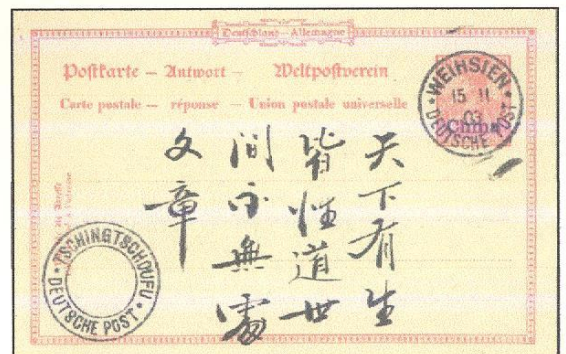 Deutschland – Allemagne
Postkarte – Antwort – Weltpostverein
Carte postale – réponse – Union postale universelle
WEIHSIEN
15 11
03
DEUTSCHE POST
China
天下有生
皆性道世
間無處
文章
TSCHINGTSCHOUFU
DEUTSCHE POST